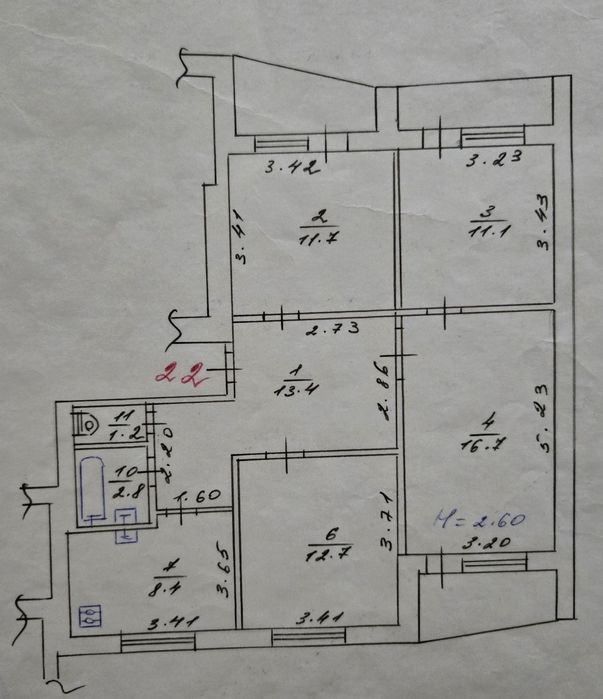 3.42
3.23
3.41
2
11.7
3
11.1
3.43
2.73
22
1
13.4
2.86
4
16.7
5.23
11
1.2
2.20
10
2.8
1.60
H=2.60
3.20
6
12.7
3.71
7
8.4
3.65
3.41
3.41